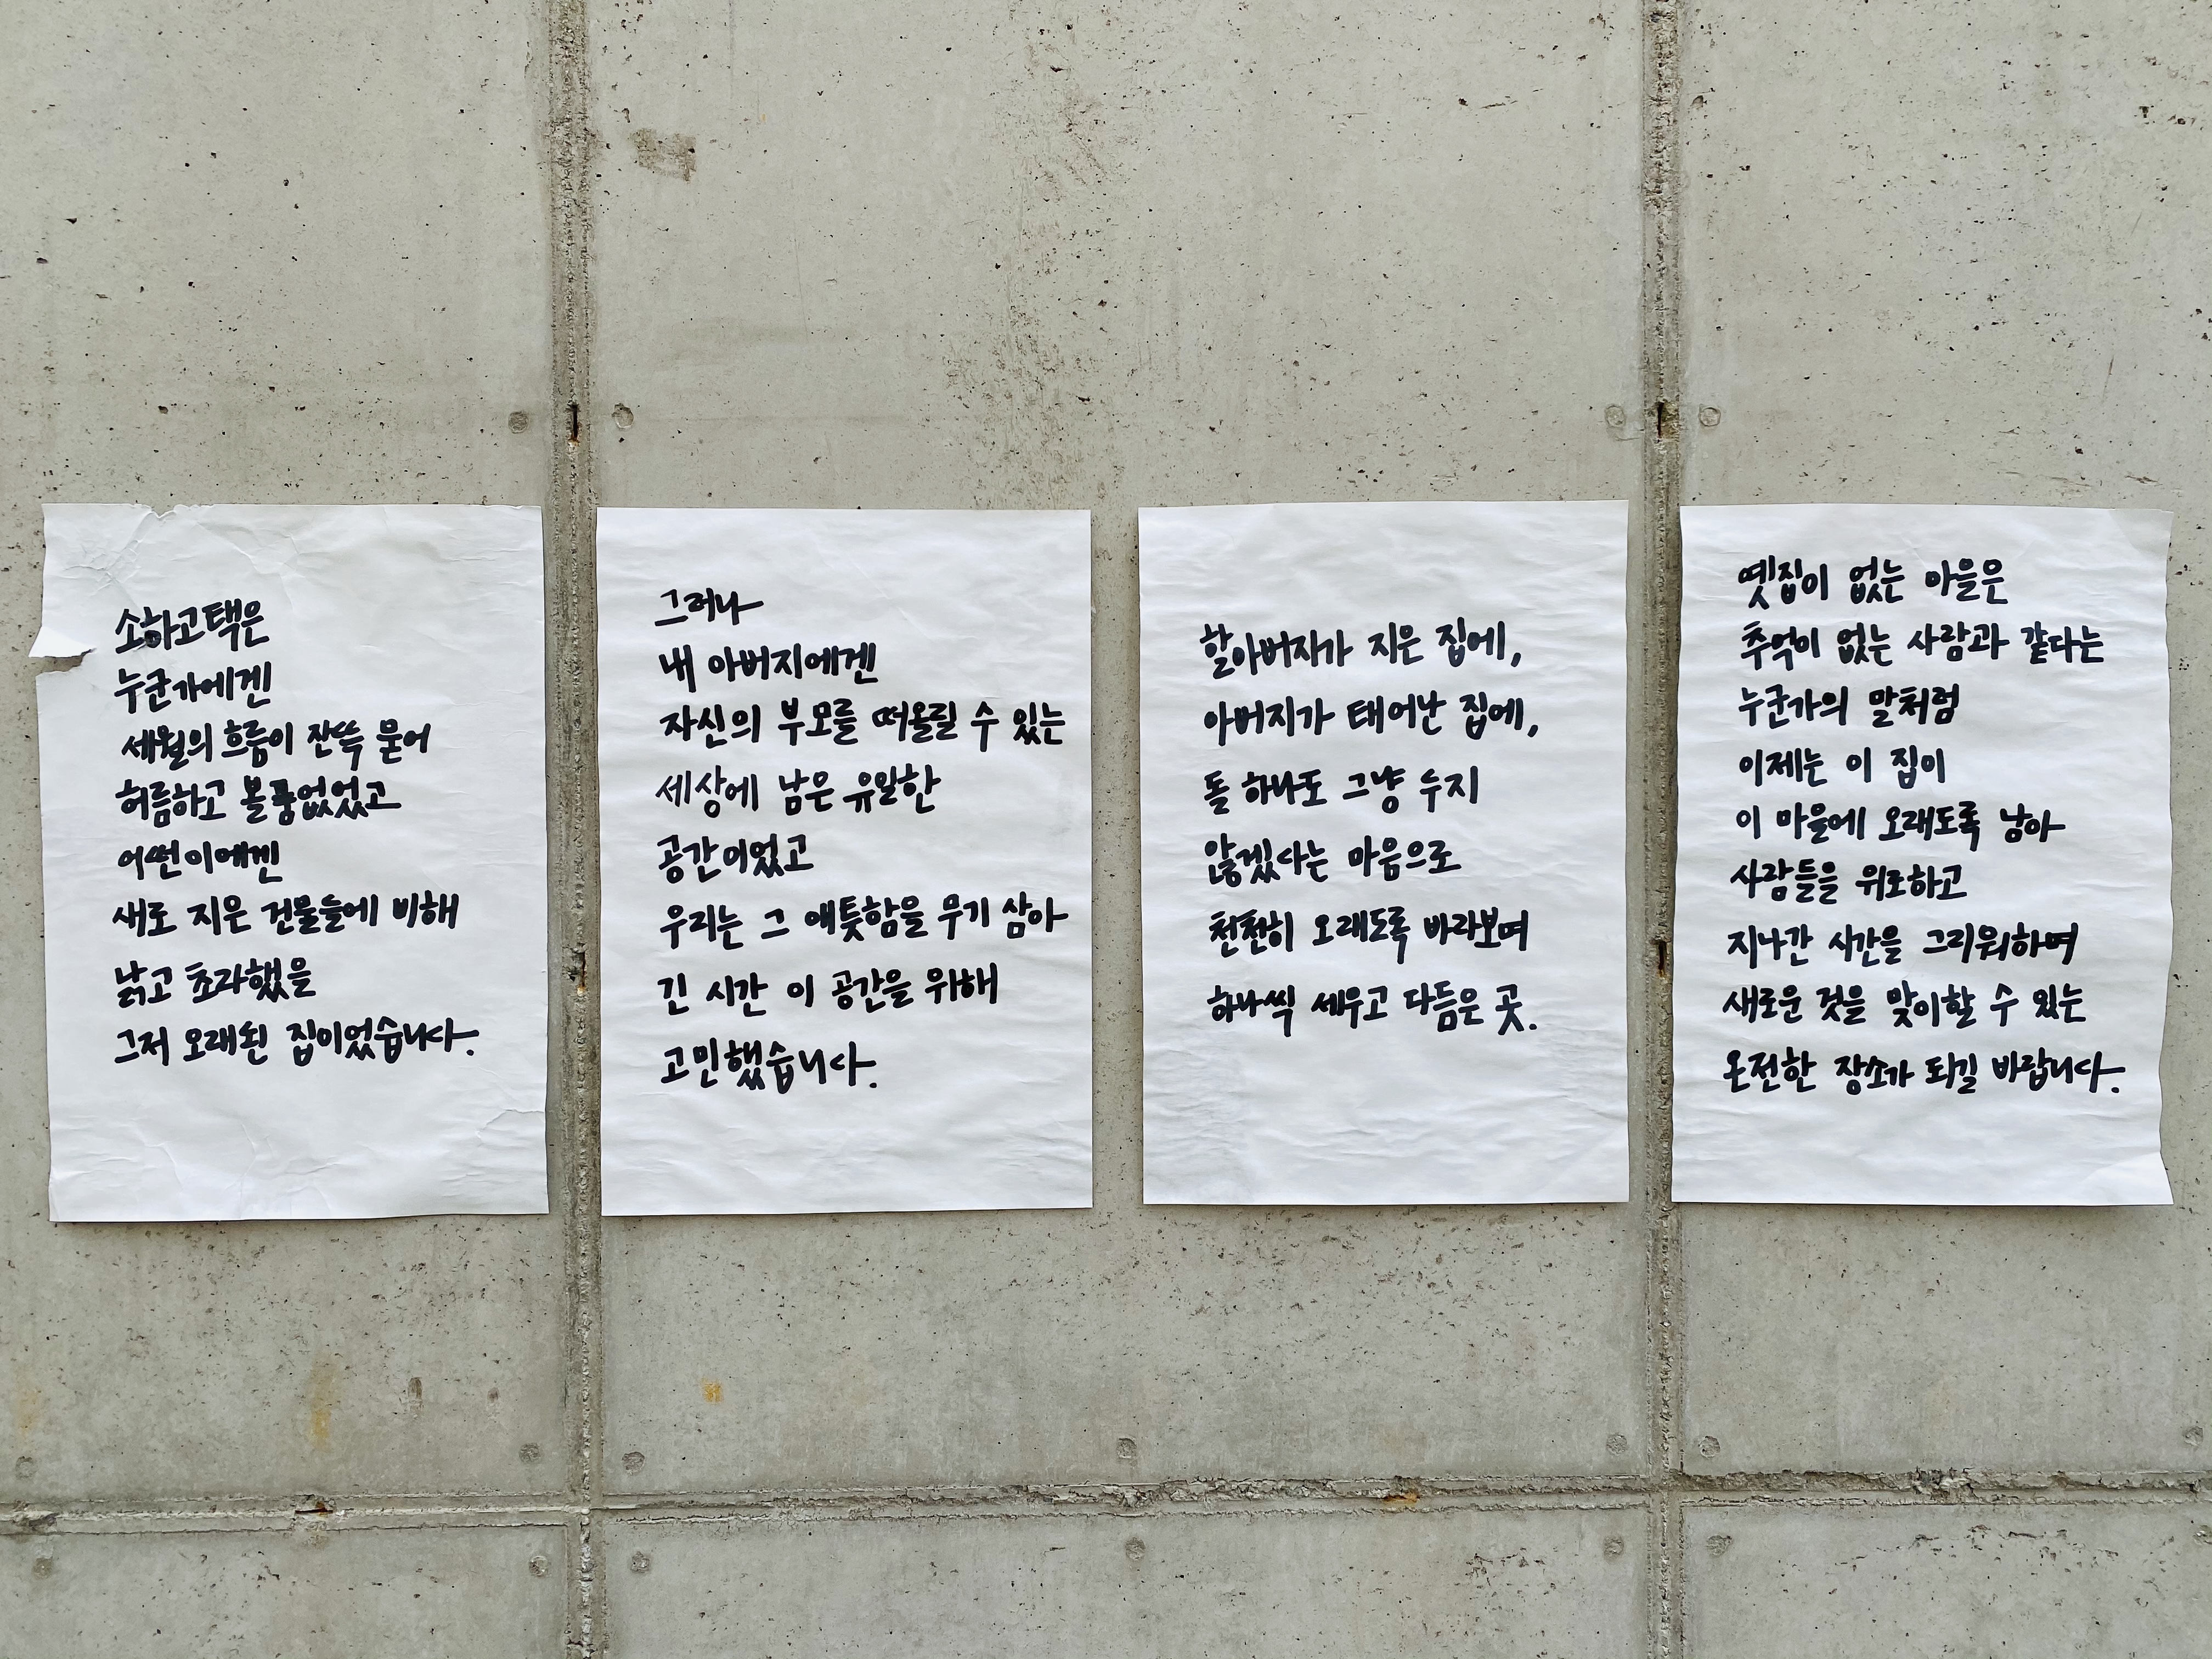 소하고택은
누군가에겐
세월의 흐름이 잔뜩 묻어
허름하고 볼품없었고
어떤이에겐
새로 지은 건물들에 비해
낡고 초라했을
그저 오래된 집이었습니다.
그러나
내 아버지에겐
자신의 부모를 떠올릴 수 있는
세상에 남은 유일한
공간이었고
우리는 그 애틋함을 무기 삼아
긴 시간 이 공간을 위해
고민했습니다.
할아버지가 지은 집에,
아버지가 태어난 집에,
돌 하나도 그냥 두지
않겠다는 마음으로
천천히 오래도록 바라보며
하나씩 세우고 다듬은 곳.
옛집이 없는 마을은
추억이 없는 사람과 같다는
누군가의 말처럼
이제는 이 집이
이 마을에 오래도록 남아
사람들을 위로하고
지나간 시간을 그리워하며
새로운 것을 맞이할 수 있는
온전한 장소가 되길 바랍니다.